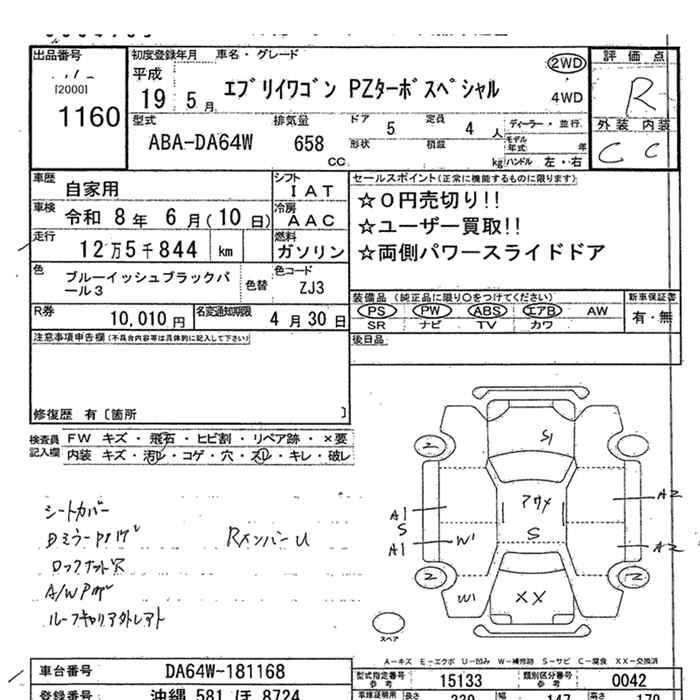 出品番号
[2000]
1160
初度登録年月 車名・グレード
平成
19 5月
エブリイワゴン PZターボスペシャル
2WD
4WD
評価点
R
外装 内装
C C
型式 排気量 ドア 5 定員 4人 ディーラー・並行
ABA-DA64W 658 cc 形状 積載 kg モデル年式 年
ハンドル 左・右
車歴 自家用
シフト IAT
車検 令和 8年 6月(10日)
冷房 AAC
走行 12万5千844 km
燃料 ガソリン
セールスポイント(正常に機能するものに限ります)
☆0円売切り!!
☆ユーザー買取!!
☆両側パワースライドドア
色 ブルーイッシュブラックパール3
色替
色コード ZJ3
R券 10,010円
名変通知期限 4月30日
装備品 (純正品に限り〇をつけてください)
PS PW ABS エアB AW
SR ナビ TV カワ
新車保証書
有・無
注意事項申告欄(不具合内容等は具体的に記入して下さい)
後日品
修復歴 有〔箇所 〕
検査員記入欄
FW キズ・飛石・ヒビ割・リペア跡・×要
内装 キズ・汚レ・コゲ・穴・スレ・キレ・破レ
シートカバー
ロックナット欠
RメンバーU
S1
2
アサメ
S
A1
S
A1
W1
W1
XX
A2
A2
2
スペア
A-キズ E-エクボ U-凹み W-補修跡 S-サビ C-腐食 XX-交換済
車台番号 DA64W-181168
型式指定番号 参考 15133
類別区分番号 参考 0042
登録番号 沖縄 581 ほ 8724
長さ 339 幅 147 高さ 179